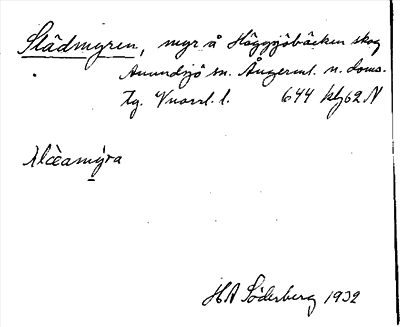 Slädmyren, myr å Höggsjöbäcken skog
Anundsjö sn. Ångerml. n. doms.
Tg. Vnorrl. l. 644 62 N
HA Söderberg 1932